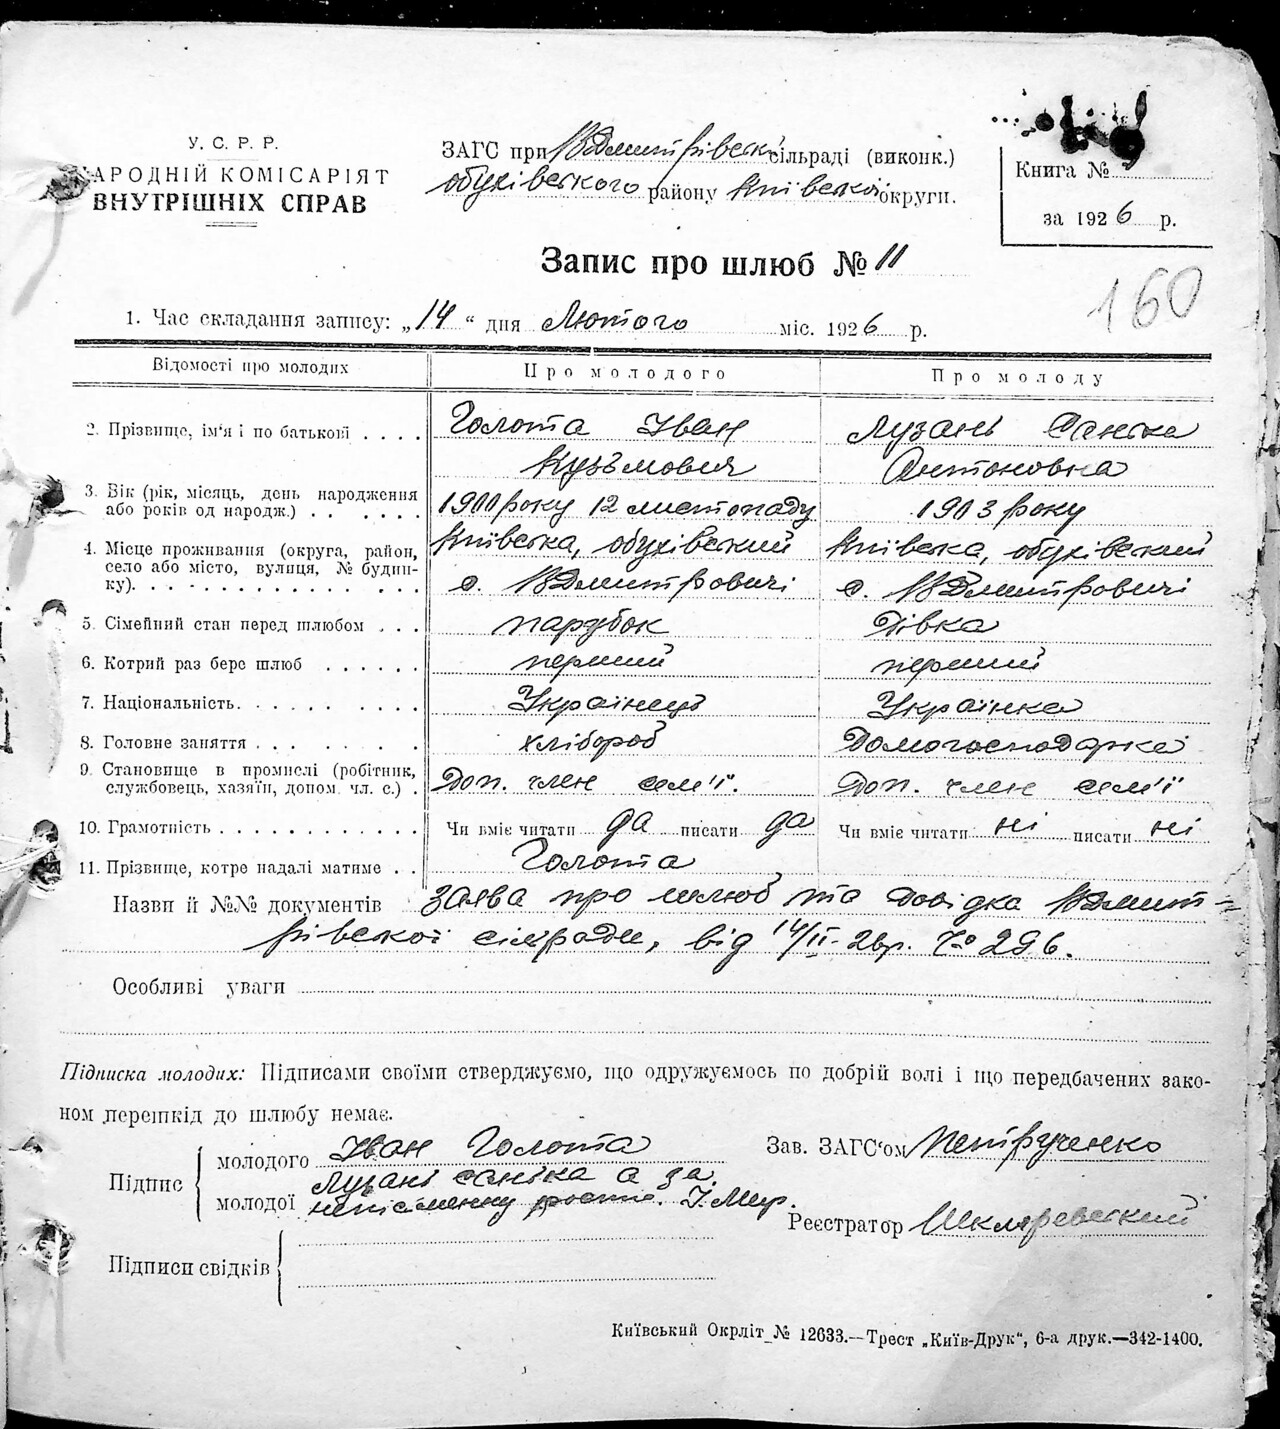 У. С. Р. Р.
НАРОДНІЙ КОМІСАРІЯТ
ВНУТРІШНІХ СПРАВ
ЗАГС при ВДмитрівськ сільраді (виконк.)
обухівського району Київської округи.
Книга №
за 1926 р.
Запис про шлюб № 11
160
1. Час складання запису: „14“ дня Лютого міс. 1926 р.
Відомості про молодих
Про молодого
Про молоду
2. Прізвище, ім'я і по батькові . . . .
Голота Іван
Кузьмович
Лузань Санька
Антоновна
3. Вік (рік, місяць, день народження
або років од народж.) . . . . . .
1900 року 12 листопаду
1903 року
4. Місце проживання (округа, район,
село або місто, вулиця, № будин-
ку). . . . . . . . . . . . . . .
Київська, обухівський
с. ВДмитровичі
Київська, обухівський
с. ВДмитровичі
5. Сімейний стан перед шлюбом . . .
парубок
Дівка
6. Котрий раз бере шлюб . . . . . .
перший
перший
7. Національність. . . . . . . . . .
Українець
Українка
8. Головне заняття . . . . . . . .
хлібороб
Домогосподарка
9. Становище в промислі (робітник,
службовець, хазяїн, допом. чл. с.) .
Доп. член сем'ї.
Доп. член сем'ї
10. Грамотність . . . . . . . . . . . .
Чи вміє читати да писати да
Чи вміє читати ні писати ні
11. Прізвище, котре надалі матиме . .
Голота
Назви й №№ документів заява про шлюб та довідка ВДмит-
рівської сільради, від 14/II-26р. № 296.
Особливі уваги
Підписка молодих: Підписами своїми стверджуємо, що одружуємось по добрій волі і що передбачених зако-
ном перешкід до шлюбу немає.
Підпис
молодого Іван Голота
молодої Лузань Санька а за
неписьменну І. Мир.
Зав. ЗАГС'ом Петрученко
Реєстратор Шкляревський
Підписи свідків
Київський Окрліт № 12633.—Трест „Київ-Друк“, 6-а друк.—342-1400.